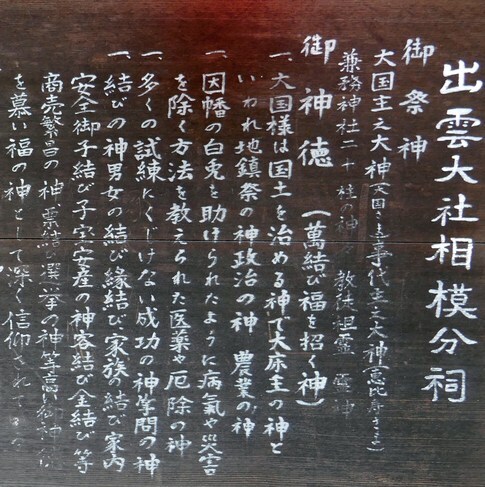 出雲大社相模分祠
御祭神
大国主之大神(大国さま)事代主之大神(恵比寿さま)
兼務神社二十柱の神 教徒祖霊 霊神
御神徳 (萬結び福を招く神)
一、大国様は国土を治める神で大床主の神と
いわれ地鎮祭の神政治の神 農業の神
一、因幡の白兎を助けられたように病氣や災害
を除く方法を教えられた医薬や厄除の神
一、多くの試練にくじけない成功の神学問の神
一、結びの神男女の結び縁結び家族の結び家内
安全御子結び子宝安産の神客結び金結び等
商売繁昌の神票結び選挙の神等高い御神徳
を慕い福の神として深く信仰されて